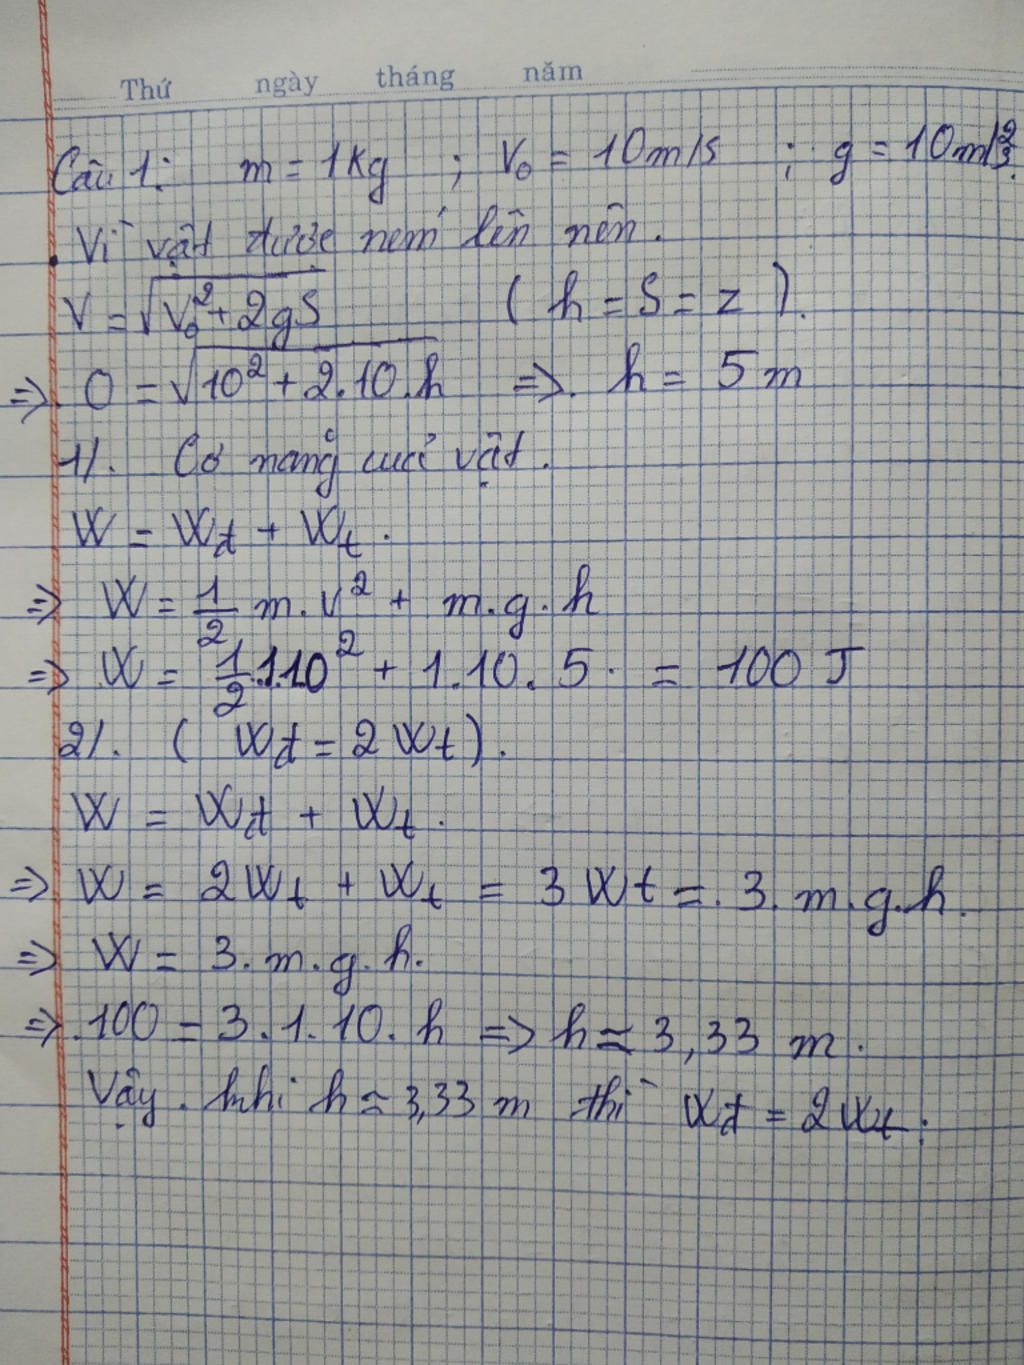 Thứ ngày tháng năm
Câu 1: m = 1Kg ; V₀ = 10m/s ; g = 10m/s².
Vì vật được ném lên nên.
V = √(V₀² + 2gS) (h = S = z).
=> 0 = √(10² + 2.10.h) =>. h = 5m
1/. Cơ năng cuả vật.
W = Wđ + Wt.
=> W = 1/2 m.v² + m.g.h
=> W = 1/2.1.10² + 1.10.5. = 100 J
2/. ( Wđ = 2 Wt).
W = Wđ + Wt.
=> W = 2Wt + Wt = 3 Wt =. 3. m.g.h.
=> W = 3.m.g.h.
=> .100 = 3.1.10.h => h ≈ 3,33 m.
Vậy. khi h ≈ 3,33 m thì Wđ = 2Wt.